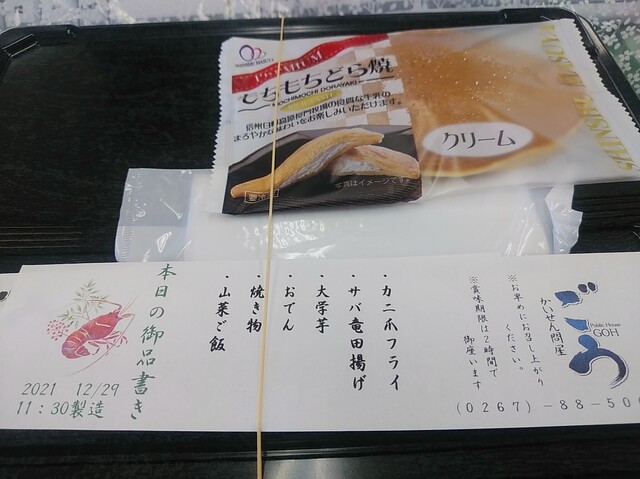 PREMIUM
もちもちどら焼
MOCHIMOCHI DORAYAKI
まろやかな味わいをお楽しみいただけます。
写真はイメージです
クリーム
かいせん問屋
ごう
Public House
GOH
※お早めにお召し上がり
ください。
※賞味期限は2時間で
御座います
(0267)-88-50
・カニ爪フライ
・サバ竜田揚げ
・大学芋
・おでん
・焼き物
・山菜ご飯
本日の御品書き
2021 12/29
11:30製造